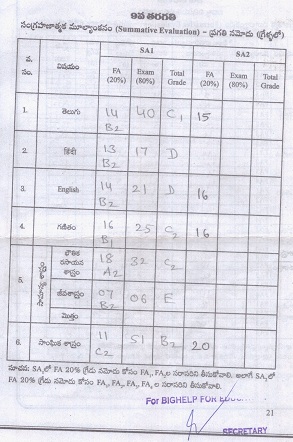 9వ తరగతి
సంగ్రహణాత్మక మూల్యాంకనం (Summative Evaluation) - ప్రగతి నమోదు (గ్రేడ్లలో)
వ. సం. విషయం SA1 SA2
FA (20%) Exam (80%) Total Grade FA (20%) Exam (80%) Total Grade
1. తెలుగు 14 B2 40 C1 15
2. హిందీ 13 B2 17 D
3. English 14 B2 21 D 16
4. గణితం 16 B1 25 C2 16
5. సామాన్య శాస్త్రం భౌతిక రసాయన శాస్త్రం 18 A2 32 C2
జీవశాస్త్రం 07 B2 06 E
మొత్తం
6. సాంఘిక శాస్త్రం 11 C2 51 B2 20
సూచన: SA1లో FA 20% గ్రేడు నమోదు కోసం FA1, FA2ల సరాసరిని తీసుకోవాలి. అలాగే SA2లో
FA 20% గ్రేడు నమోదు కోసం FA1, FA2, FA3, FA4 ల సరాసరిని తీసుకోవాలి.
For BIGHELP FOR
21
SECRETARY